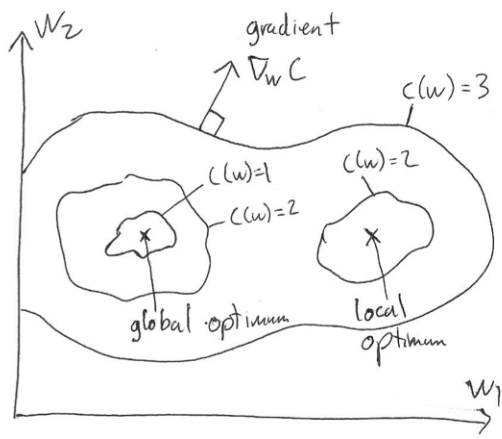 W₂
gradient
∇wC
C(w)=3
C(w)=1
C(w)=2
C(w)=2
global optimum
local
optimum
W₁